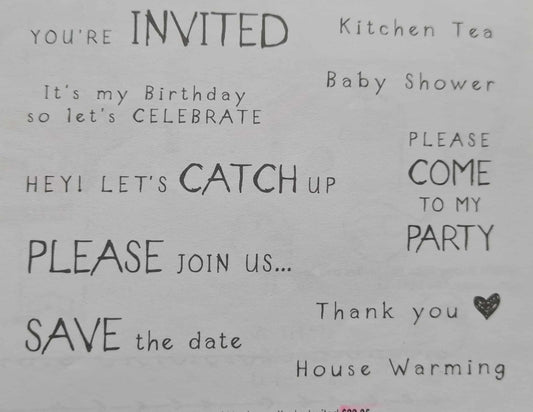 YOU'RE INVITED
It's my Birthday
so let's CELEBRATE
HEY! LET'S CATCH UP
PLEASE JOIN US...
SAVE the date
Kitchen Tea
Baby Shower
PLEASE
COME
TO MY
PARTY
Thank you ♥
House Warming